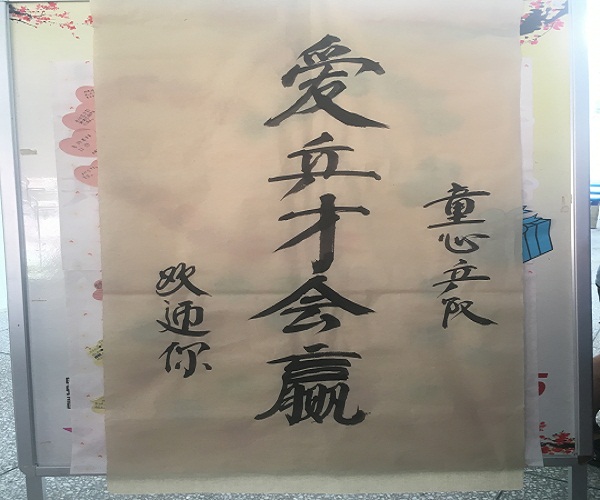 童心乒队
爱乒才会赢
欢迎你